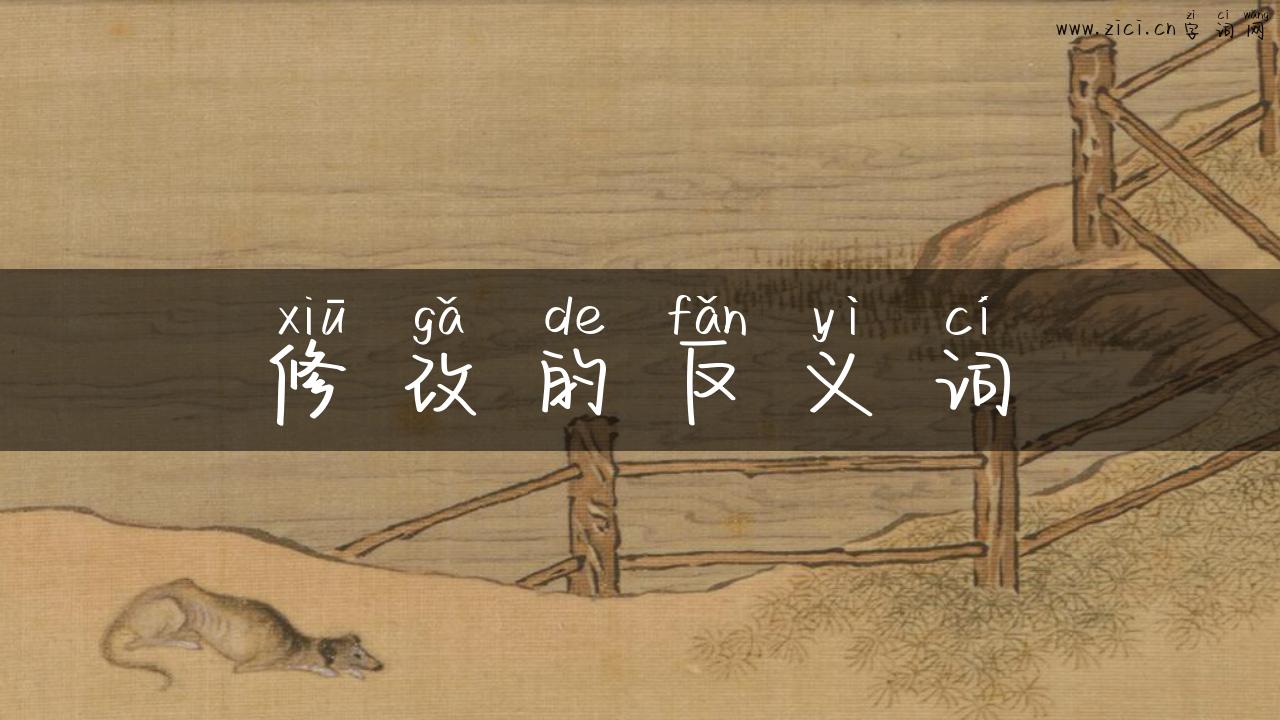 zì cí wǎng
www.zici.cn 字词网
xiū gǎ de fǎn yì cí
修改的反义词